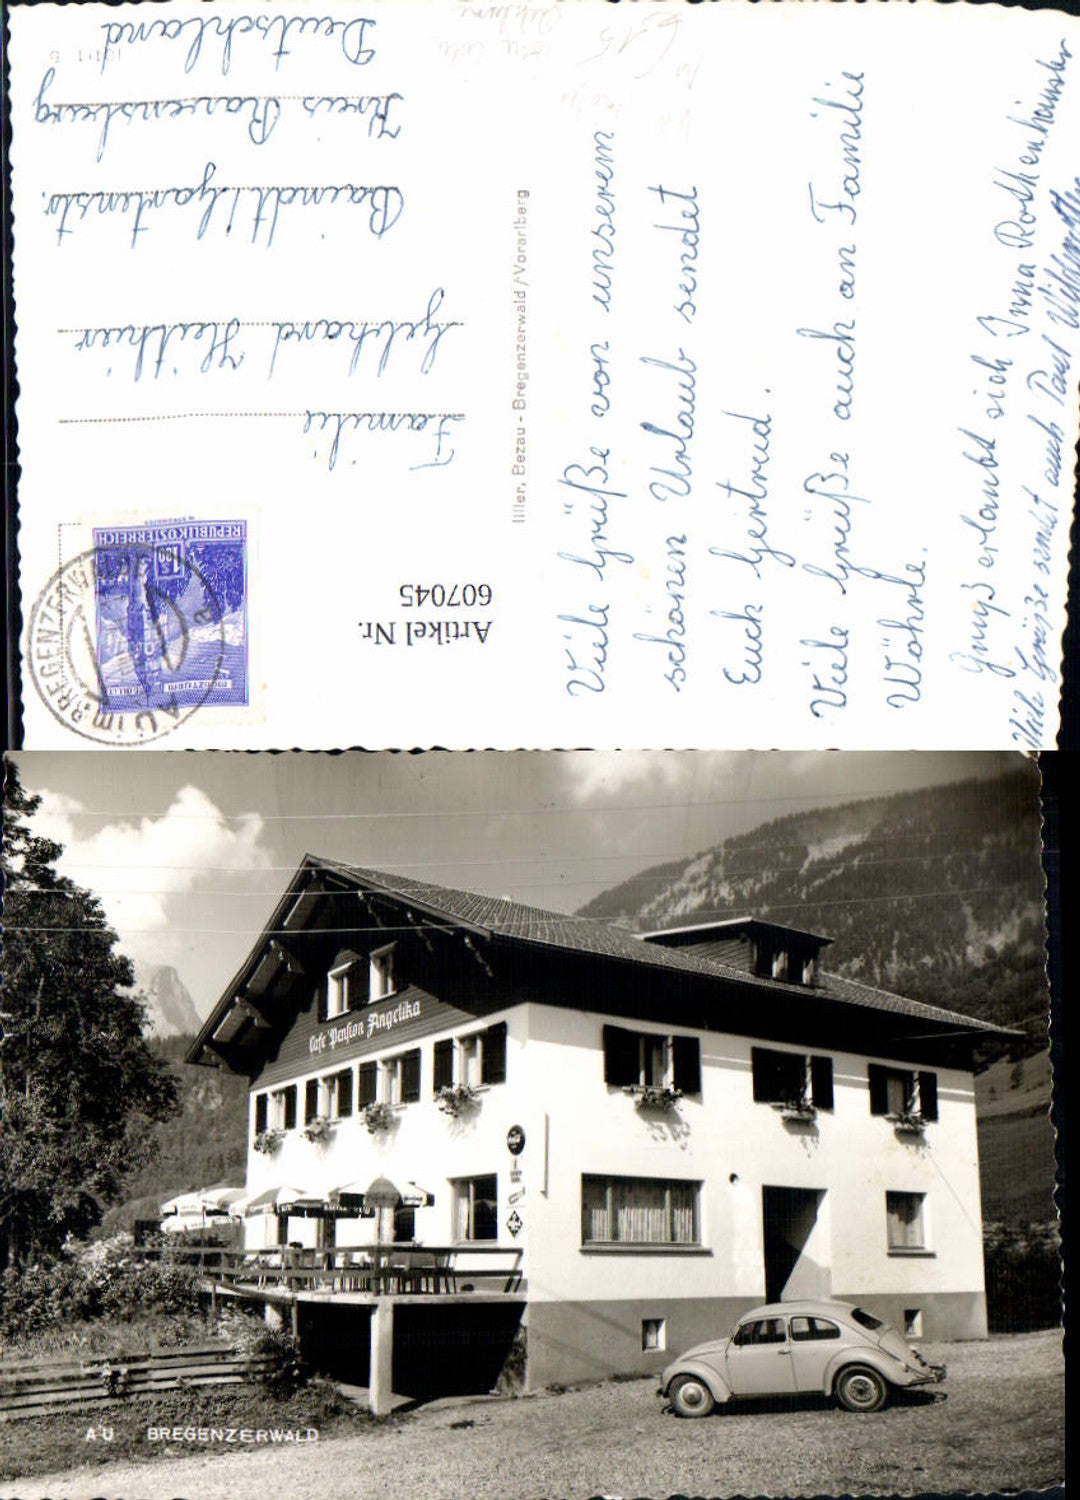 Viele Grüße von unserem
schönen Urlaub sendet
Euch Gertrud.
Viele Grüße auch an Familie
Wöhrle.
Gruß erlaubt sich Inna Rothenhäusler
Viele Grüße sendet auch Paul
Familie
Gebhard
Baindt/Gartenstr.
Kreis Ravensburg
Deutschland
Hiller, Bezau - Bregenzerwald/Vorarlberg
Artikel Nr.
607045
REPUBLIK ÖSTERREICH
AU im BREGENZERWALD
Cafe Pension Angelika
AU BREGENZERWALD